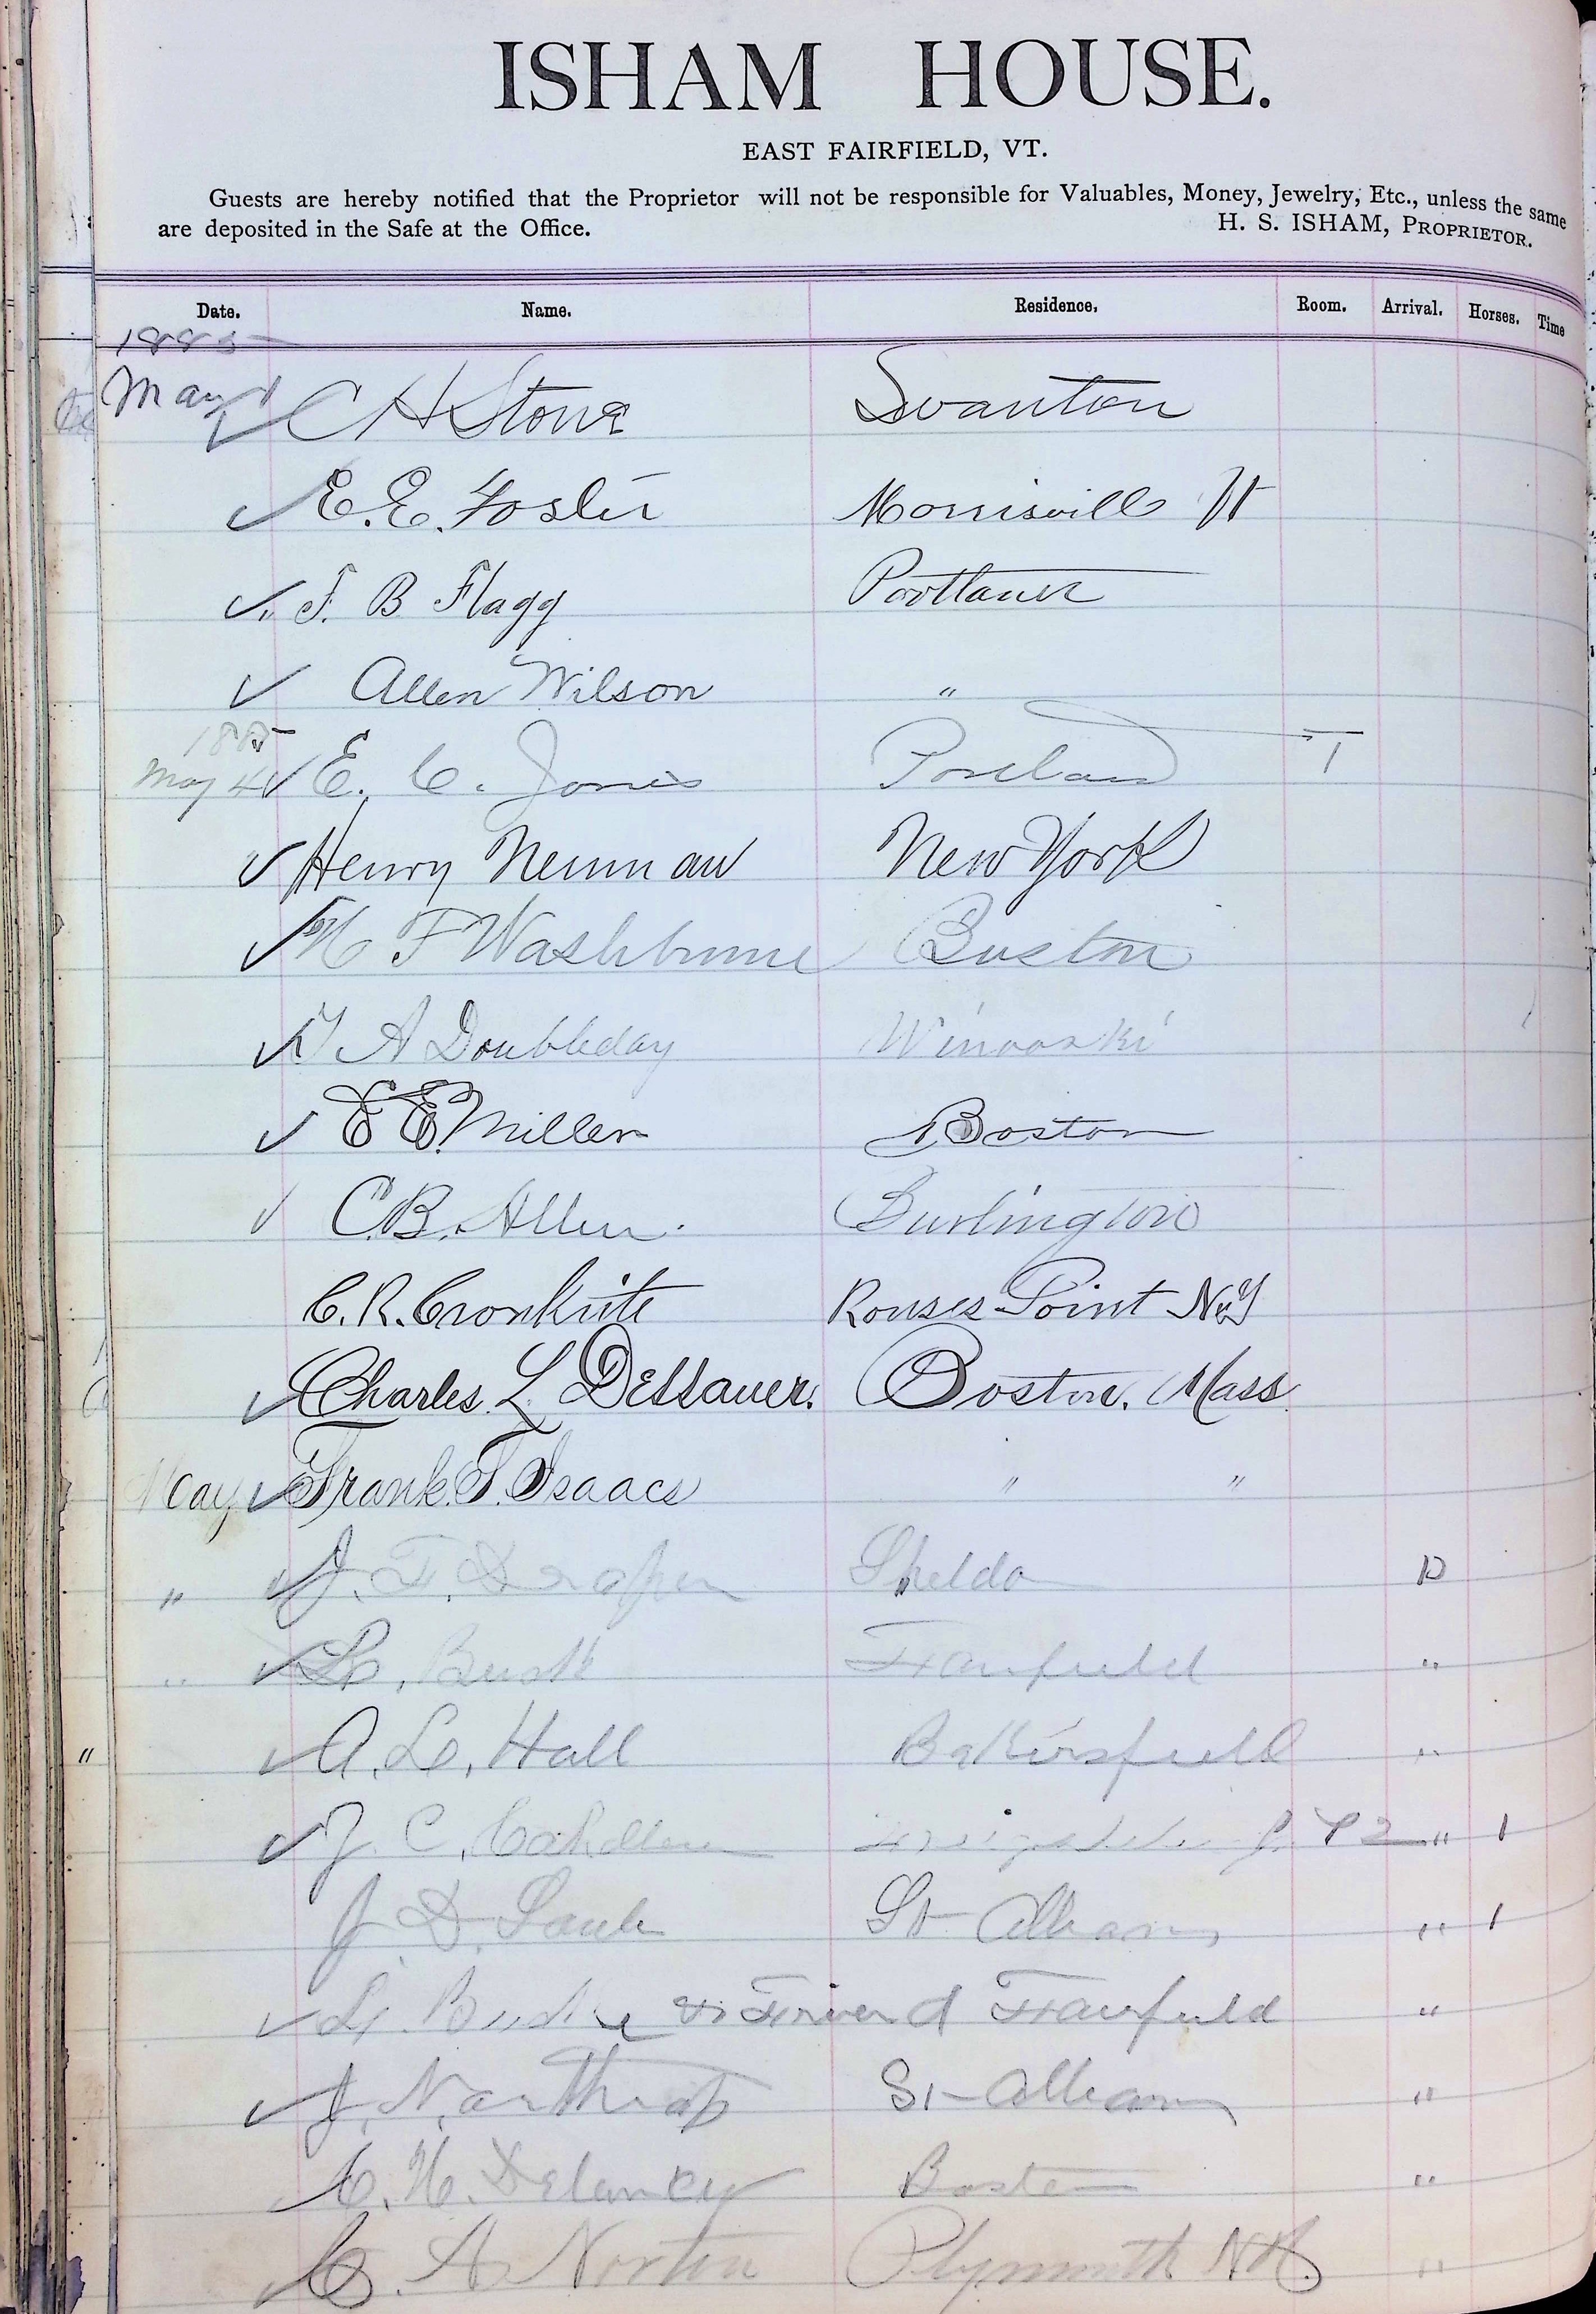 ISHAM HOUSE.
EAST FAIRFIELD, VT.
Guests are hereby notified that the Proprietor will not be responsible for Valuables, Money, Jewelry, Etc., unless the same
are deposited in the Safe at the Office. H. S. ISHAM, PROPRIETOR.
Date. Name. Residence. Room. Arrival. Horses. Time
1885
May 1 ✓ C H Stone Swanton
✓ E. E. Foster Morrisville Vt
✓ " F. B Flagg Portland
✓ Allen Wilson "
1885
May 4 ✓ E. C. Jones Portland 1
✓ Henry Neuman New York
✓ H F Washburne Boston
✓ A Doubleday Winooski
✓ E E. Miller Boston
✓ C. B. Allen. Burlington
C. R. Cronkrite Rouses Point N.Y
✓ Charles L Dessauer. Boston. Mass
May ✓ Frank. T. Isaacs " "
" ✓ J. F. Draper Sheldon D
" ✓ L. Fairfield "
" ✓ A. L. Hall Bakersfield "
✓ J. C. " 1
J. D. St Albans " 1
✓ L. & Friend Fairfield "
✓ J. Northrop St-Albans "
C. H. Delancey Boston "
C. A. Norton Plymouth N H. "